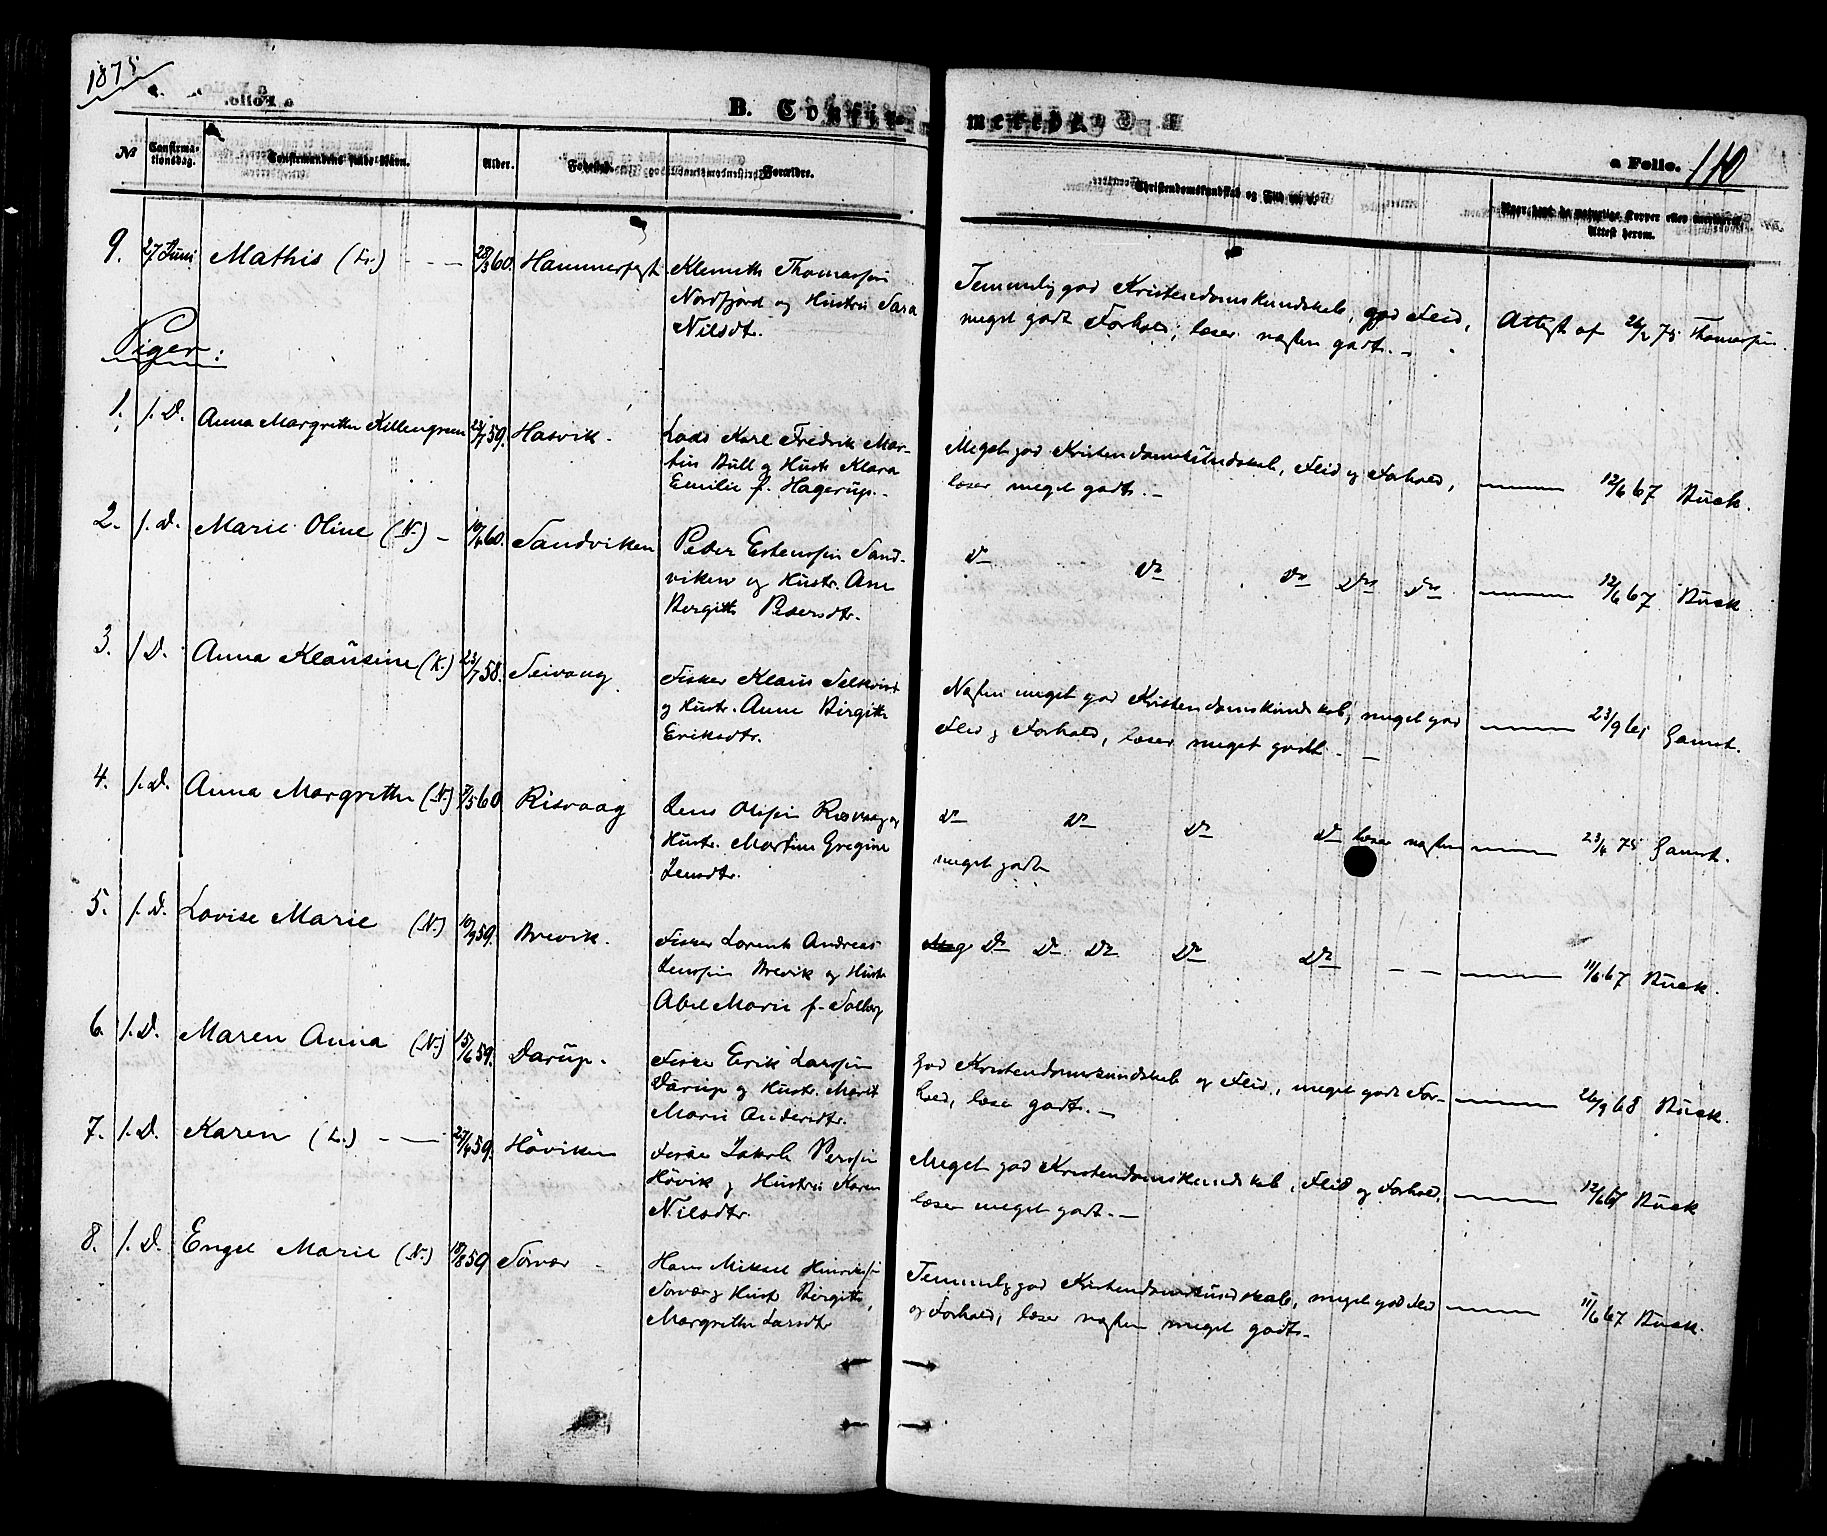 1875
B. Confir
merede.
a Folio. 110
No
Confirma-
tionsdag.
Confirmandens fulde Navn.
Alder.
Fødested.
Forældre.
Christendomskundskab og Flid
Naar, hvor
Attest herom.
9. 27 Juni Mathis (L.) - - - 28/3 60. Hammerfest Klemeth Thomassen
Nordfjord og Hustru Sara
Nilsdtr.
Temmelig god Kristendomskundskab, god Flid,
meget godt Forhold, læser næsten godt. -
Attest af 26/2 75 Thomassen.
Piger:
1. s. D. Anna Margrethe Killengreen 23/7 59. Hasvik.
Lods Karl Fredrik Mar-
tin Bull og Hustr Klara
Emilie f. Hagerup. -
Meget god Kristendomskundskab, Flid og Forhold,
læser meget godt. -
12/6 67 Buck.
2. s. D. Marie Oline (N.) - 10/4 60. Sandviken
Peder Estensen Sand-
viken og Hustr. Ane
Bergitte Pedersdtr.
Do Do Do Do Do
12/6 67 Buck
3. s. D. Anna Klausine (K.) 23/7 58. Seivaag
Fisker Klaus Selkvist
og Hustr. Anne Birgitte
Eriksdtr.
Næsten meget god Kristendomskundskab, meget god
Flid og Forhold, læser meget godt. -
23/9 61 Gamst.
4. s. D. Anna Margrethe (N.) 7/5 60 Risvaag
Jens Olsen Risvaag og
Hustr. Martine Gregine
Jensdtr.
Do Do Do Do læser næsten
meget godt
23/4 75 Gamst.
5. s. D. Lovise Marie (N.) 10/9 59. Brevik.
Fisker Lorents Andreas
Jenssen Brevik og Hustr
Abel Marie f. Solberg
Do Do Do Do Do - -
11/6 67 Buck.
6. s. D. Maren Anna (N.) 15/6 59. Darup.
Fisker Erik Larssen
Darup og Hustr. Marit
Marie Andersdtr.
God Kristendomskundskab og Flid, meget godt For-
hold, læser godt. -
26/9 68 Buck.
7. s. D. Karen (L.) - - 27/4 59. Håviken
Fisker Jakob Perssen
Håvik og Hustru Karen
Nilsdtr.
Meget god Kristendomskundskab, Flid og Forhold,
læser meget godt. -
12/6 67 Buck
8. s. D. Engel Marie (N.) 18/8 59 Sørvær -
Hans Mikael Hinriksen
Sørvær og Hust Birgitte
Margrethe Larsdtr
Temmelig god Kristendomskundskab, meget god Flid
og Forhold, læser næsten meget godt. -
11/6 67 Buck.